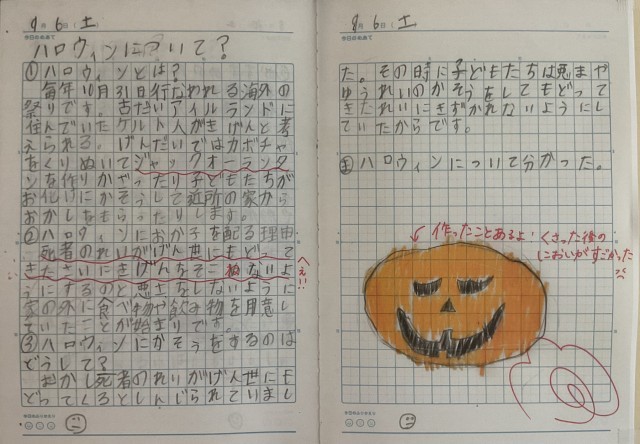 9月 6日(土)
今日のめあて
ハロウィンについて?
①ハロウィンとは?
毎年10月31日行なわれる海外の
祭りです。古だいアイルランドに
住んでいたケルト人がきげんと考
えられる。げんだいではカボチャ
をくりぬいてジャックオーランタ
ンを作りかざったり子どもたちが
お化けにかそうして近所の家から
おかしをもらったりします。
②ハロウィンにおか子を配る理由
死者のれいがげん世にもどって
きたさいにきげんをそこねないよ
うにするのと悪さをしないように
家の外に食べ物や飲み物を用意し
ていたことが始まりです。
へぇ!!
③ハロウィンにかそうをするのは
どうして?
むかし死者のれいがげん世にも
どってくるとしんじられていまし
9月 6日(土)
今日のめあて
た。その時に子どもたちは悪まや
ゆうれいのかそうをしてもどって
きたれいにきずかれないようにし
ていたからです。
ハロウィンについて分かった。
作ったことあるよ!くさった後の
においがすごかった